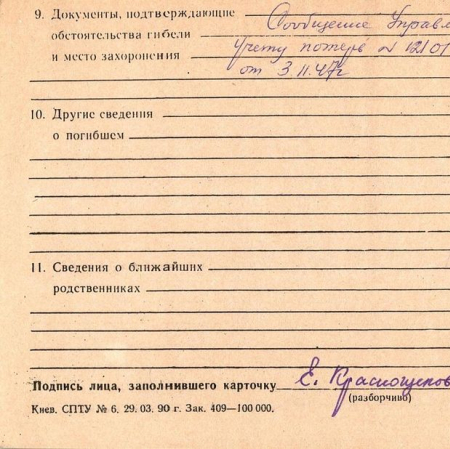 9. Документы, подтверждающие Сообщение Управл
обстоятельства гибели учету потерь № 12101
и место захоронения от 3.11.47г
10. Другие сведения
о погибшем
11. Сведения о ближайших
родственниках
Подпись лица, заполнившего карточку Е. Краснощеков
(разборчиво)
Киев. СПТУ № 6. 29. 03. 90 г. Зак. 409—100 000.